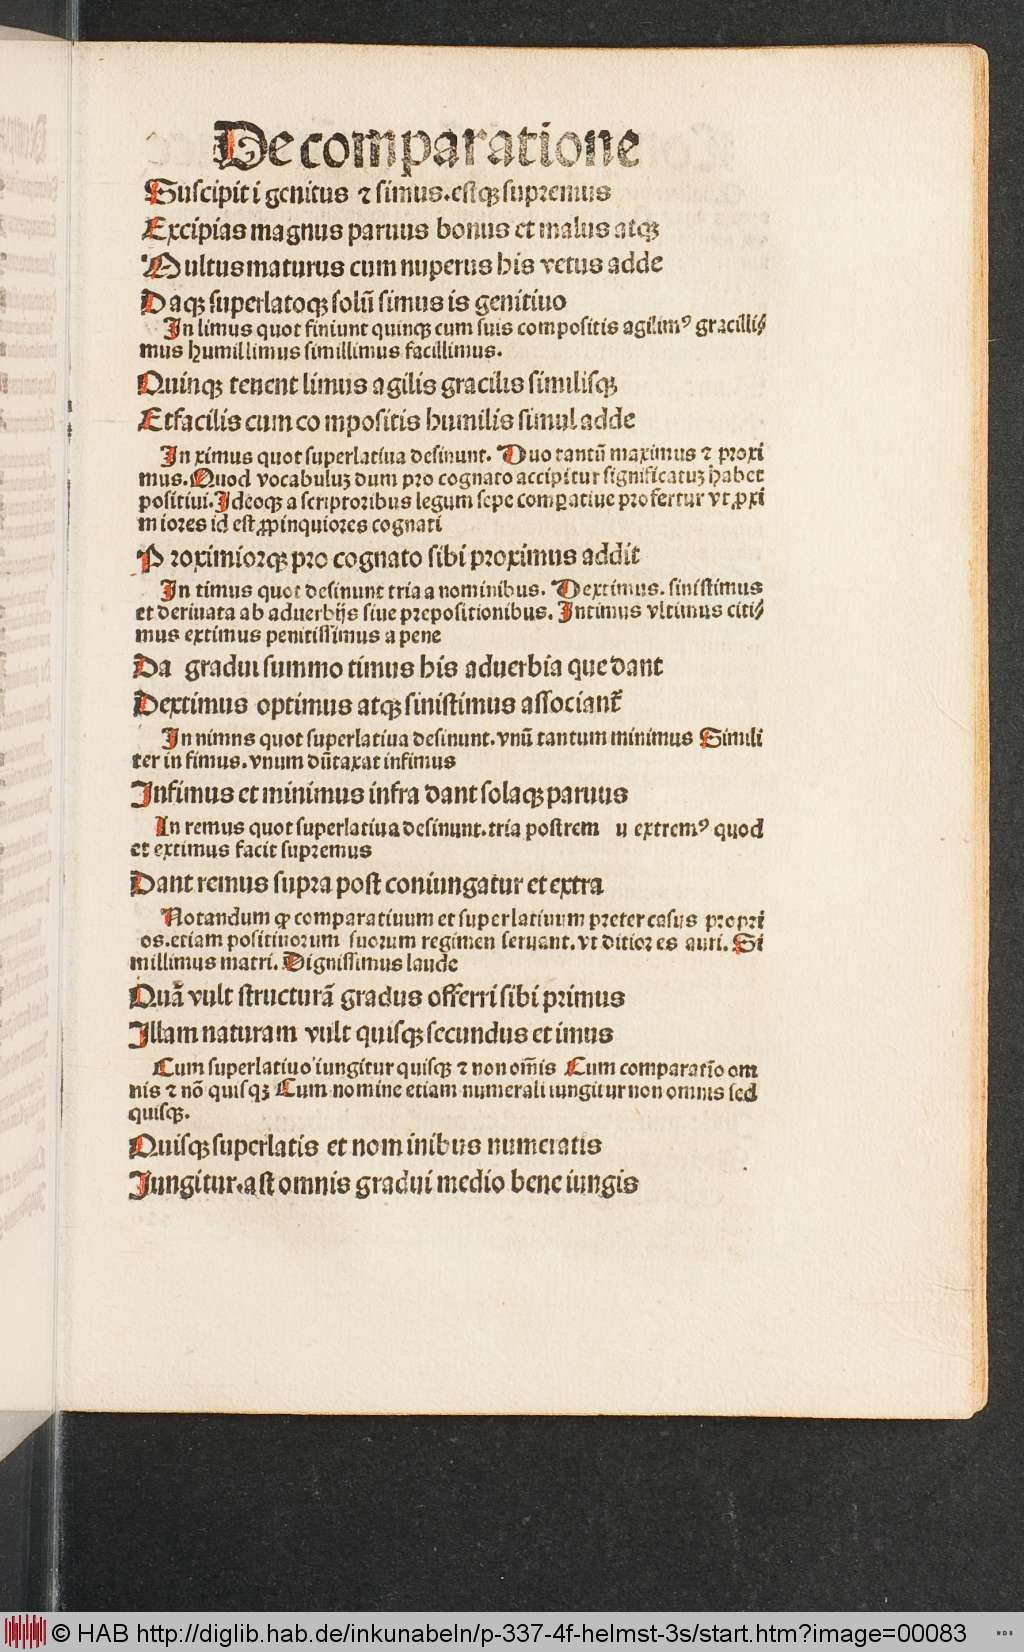 De comparatione
Suscipit i genitus ⁊ simus.estqꝫ supremus
Excipias magnus paruus bonus et malus atqꝫ
Multus maturus cum nuperus his vetus adde
Daqꝫ superlatoqꝫ solū simus is genitiuo
In limus quot finiunt quinqꝫ cum suis compositis agilimꝰ gracilli⸗
mus humillimus simillimus facillimus.
Quinqꝫ tenent limus agilis gracilis similisqꝫ
Et facilis cum compositis humilis simul adde
In ximus quot superlatiua desinunt. Duo tantū maximus ⁊ proxi
mus. Quod vocabuluꝫ dum pro cognato accipitur significatuꝫ habet
positiui. Ideoqꝫ a scriptoribus legum sepe comꝑatiue profertur vt ꝓxi
miores id est ꝓpinquiores cognati
Proximiorqꝫ pro cognato sibi proximus addit
In timus quot desinunt tria a nominibus. Dextimus. sinistimus
et deriuata ab aduerbijs siue prepositionibus. Intimus vltimus citi⸗
mus extimus penitissimus a pene
Da gradui summo timus his aduerbia que dant
Dextimus optimus atqꝫ sinistimus associant᷑
In nimns quot superlatiua desinunt. vnū tantum minimus Simili
ter in fimus. vnum dūtaxat infimus
Infimus et minimus infra dant solaqꝫ paruus
In remus quot superlatiua desinunt. tria postrem u extremꝰ quod
et extimus facit supremus
Dant remus supra post coniungatur et extra
Notandum ꝙ comparatiuum et superlatiuum preter casus propri
os. etiam positiuorum suorum regimen seruant. vt ditiores auri. Si
millimus matri. Dignissimus laude
Quā vult structurā gradus offerri sibi primus
Illam naturam vult quisqꝫ secundus et imus
Cum superlatiuo iungitur quisqꝫ ⁊ non om̄is Cum comparatīo om
nis ⁊ nō quisqꝫ Cum nomine etiam numerali iungitur non omnis sed
quisqꝫ.
Quisqꝫ superlatis et nominibus numeratis
Iungitur. ast omnis gradui medio bene iungis
© HAB http://diglib.hab.de/inkunabeln/p-337-4f-helmst-3s/start.htm?image=00083